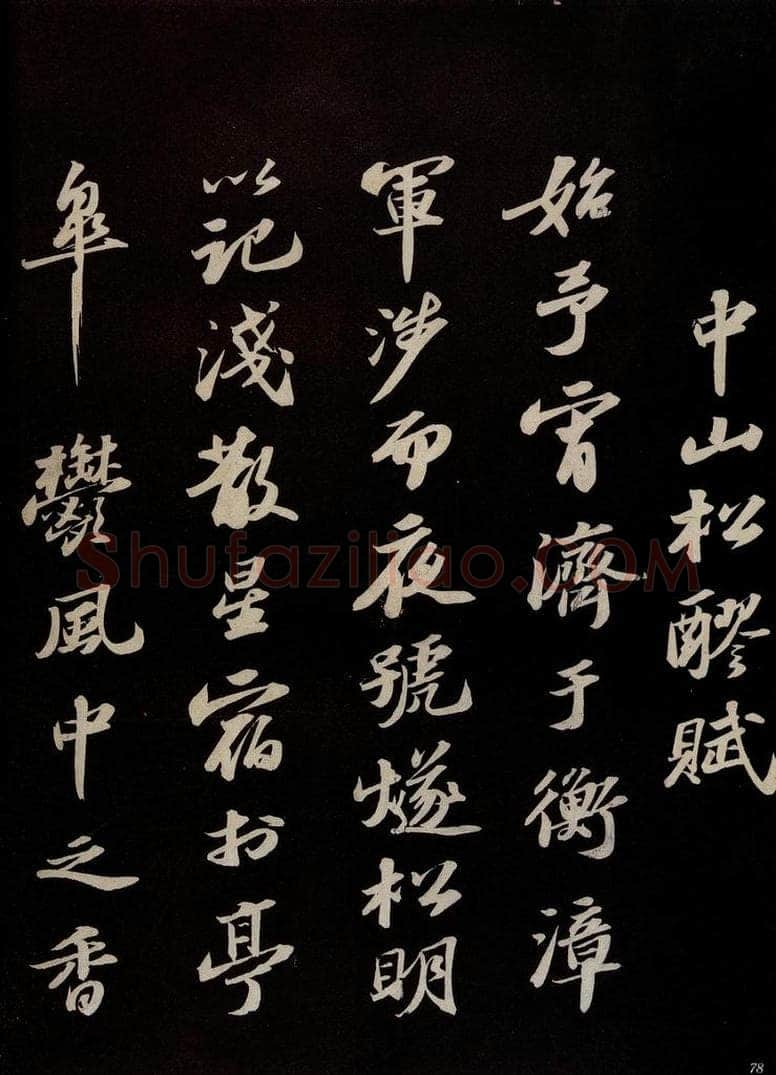 中山松醪賦
始予宵濟于衡漳
軍涉而夜號燧松明
以記淺散星宿於亭
皋鬱風中之香
Shufaziliao.COM
78